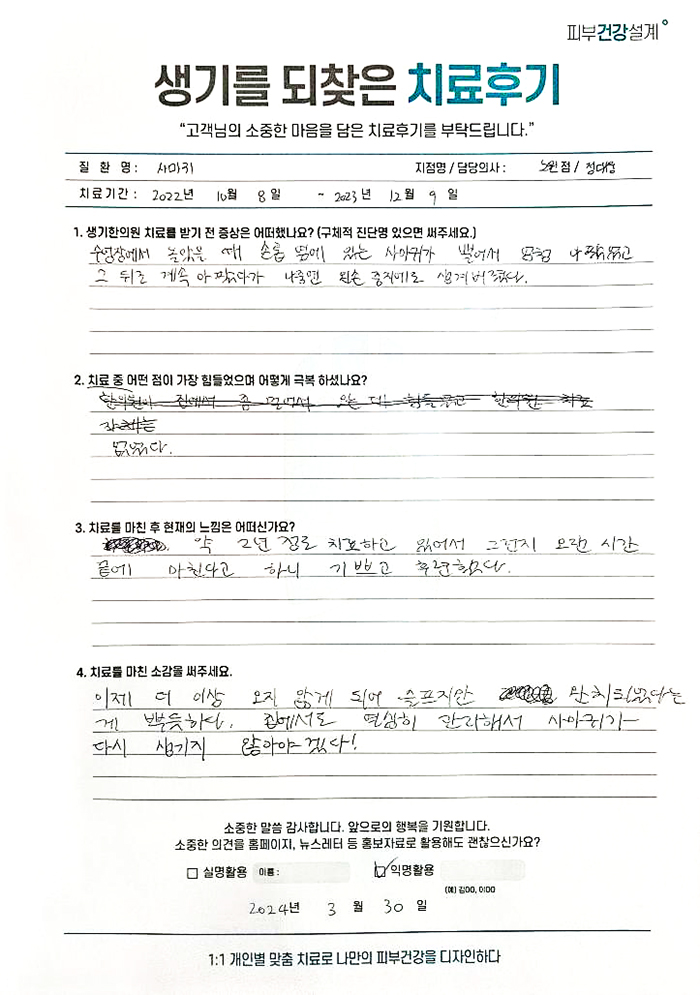 피부건강설계
생기를 되찾은 치료후기
“고객님의 소중한 마음을 담은 치료후기를 부탁드립니다.”
질 환 명 : 사마귀 지점명 / 담당의사 : 노원점 /
치료기간 : 2022년 10월 8일 ~ 2023년 12월 9일
1. 생기한의원 치료를 받기 전 증상은 어떠했나요? (구체적 진단명 있으면 써주세요.)
수영장에서 놀았을 때 손톱 옆에 있는 사마귀가
그 뒤로 계속 아팠다가 나중엔 왼손 중지에도 생겨버렸다.
2. 치료 중 어떤 점이 가장 힘들었으며 어떻게 극복 하셨나요?
한의원이 집에서 좀 멀어서 오는 데는 힘들었고 한의원 치료
자체는
없었다.
3. 치료를 마친 후 현재의 느낌은 어떠신가요?
약 2년 정도 치료하고 있어서 그런지 오랜 시간
끝에 마친다고 하니 기쁘고 후련했다.
4. 치료를 마친 소감을 써주세요.
이제 더 이상 오지 않게 되어 슬프지만 완치되었다는
게 뿌듯하다. 집에서도 열심히 관리해서 사마귀가
다시 생기지 않아야겠다!
소중한 말씀 감사합니다. 앞으로의 행복을 기원합니다.
소중한 의견을 홈페이지, 뉴스레터 등 홍보자료로 활용해도 괜찮으신가요?
□ 실명활용 이름 : ☑ 익명활용
(예) 김OO, 이OO
2024년 3월 30일
1:1 개인별 맞춤 치료로 나만의 피부건강을 디자인하다